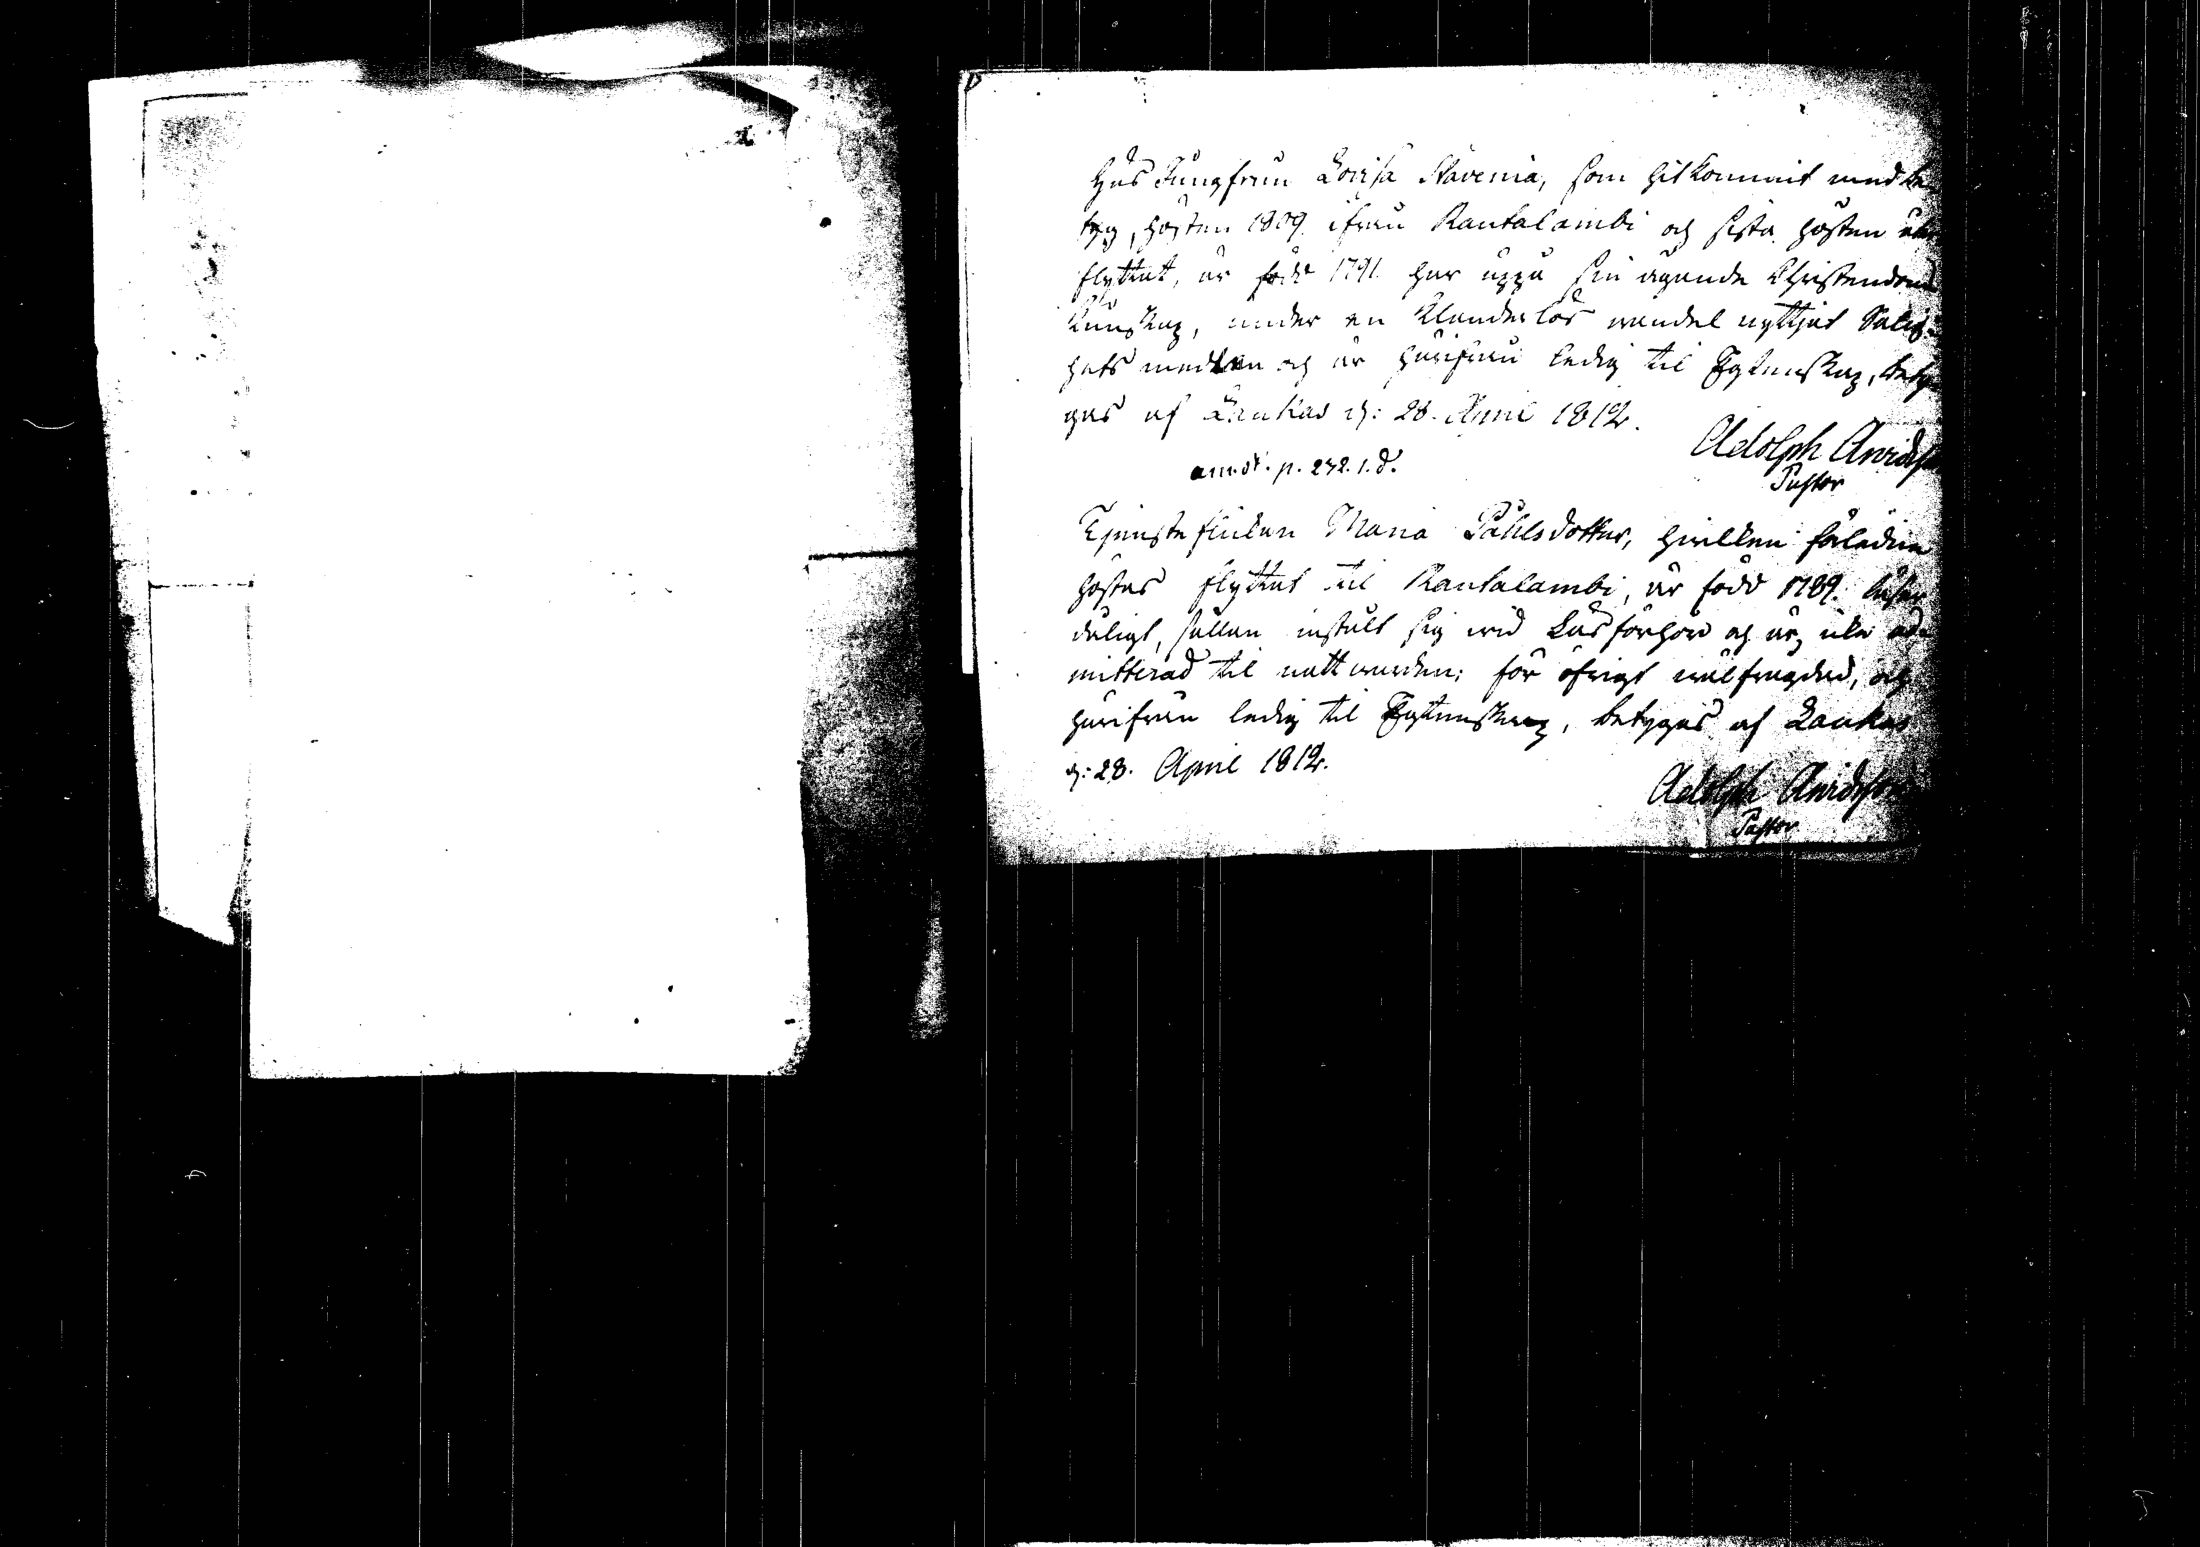 Hus Jungfrun Lovisa Stavenia, som hitkommit med be
tyg, hösten 1809. ifrån Rautalambi och sista hösten
flyttat, är född 1791. har uppå sin ägande Christendoms
kunskap, under en klanderlös wandel nyttjat Salig-
hets medlen och är härifrån ledig til Egtenskap, bety
gas af Laukas d: 28. April 1812.
Adolph Arvidsson
Pastor
p. 272. 1. d.
Tjenste flickan Maria Påhlsdotter, hwilken förledine
höstas flyttat til Rautalambi, är född 1789. läser
dåligt, sällan instält sig wid Läsförhör och är, icke ad-
mitterad til nattwarden; för öfrigt wälfrägdad, och
härifrån ledig til Egtenskap, betygas af Laukas
d: 28. April 1812.
Adolph Arvidsson
Pastor